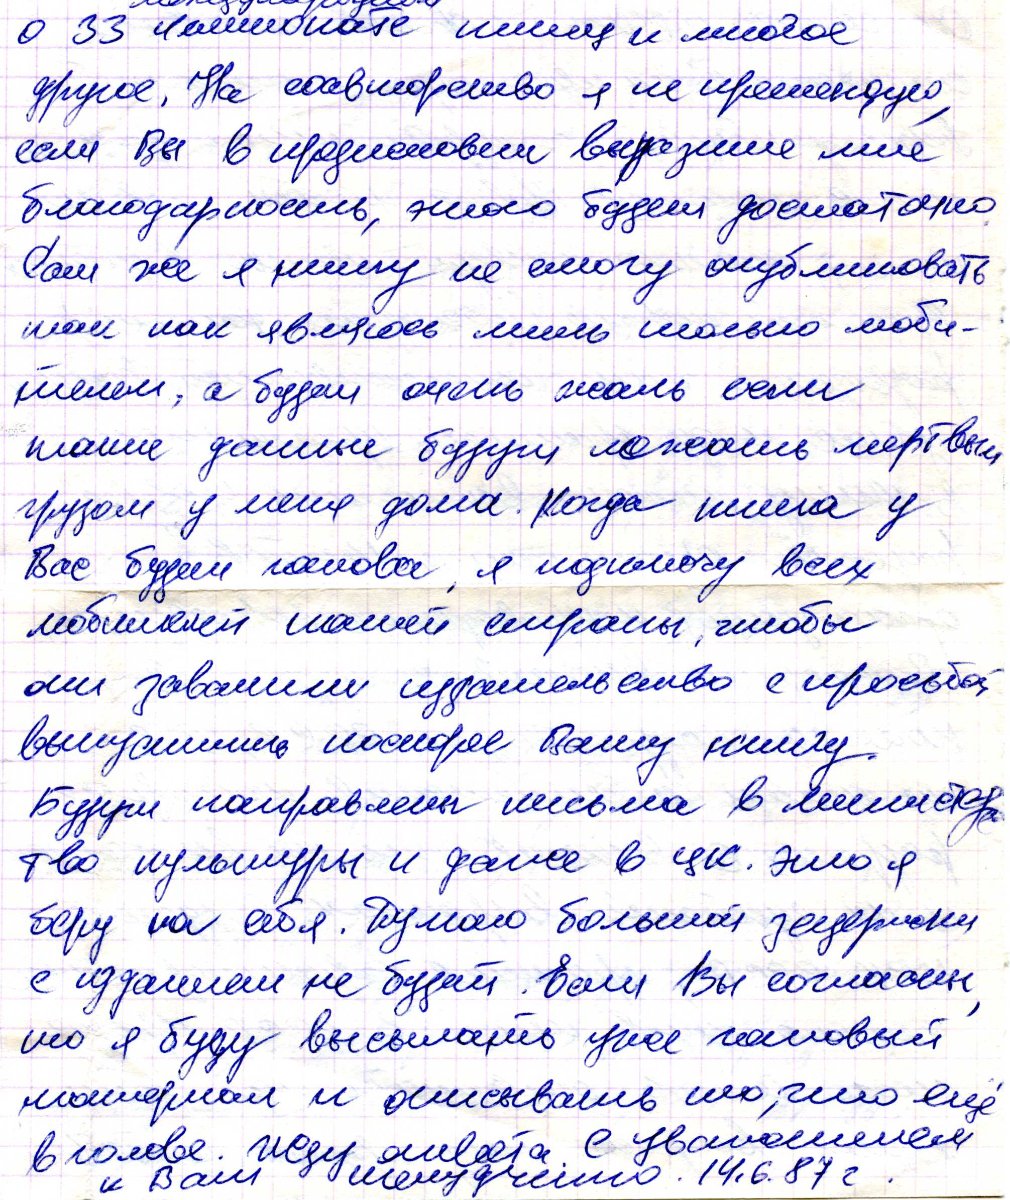 международном
о 33 чемпионате птиц и многое
другое. На соавторство я не претендую,
если Вы в предисловии выразите мне
благодарность, этого будет достаточно
Сам же я книгу не смогу опубликовать
так как являюсь лишь только люби-
телем, а будет очень жаль если
такие данные будут лежать мертвым
грузом у меня дома. Когда книга у
Вас будет готова, я подключу всех
любителей нашей страны, чтобы
они завалили издательство с просьбой
выпустить поскорее Вашу книгу.
Будут направлены письма в министерс
тво культуры и даже в ЦК. Это я
беру на себя. Думаю большой задержки
с изданием не будет. Если Вы согласны,
то я буду высылать уже готовый
материал и описывать то, что ещё
в голове. Жду ответа С уважением
к Вам 14.6.87 г.